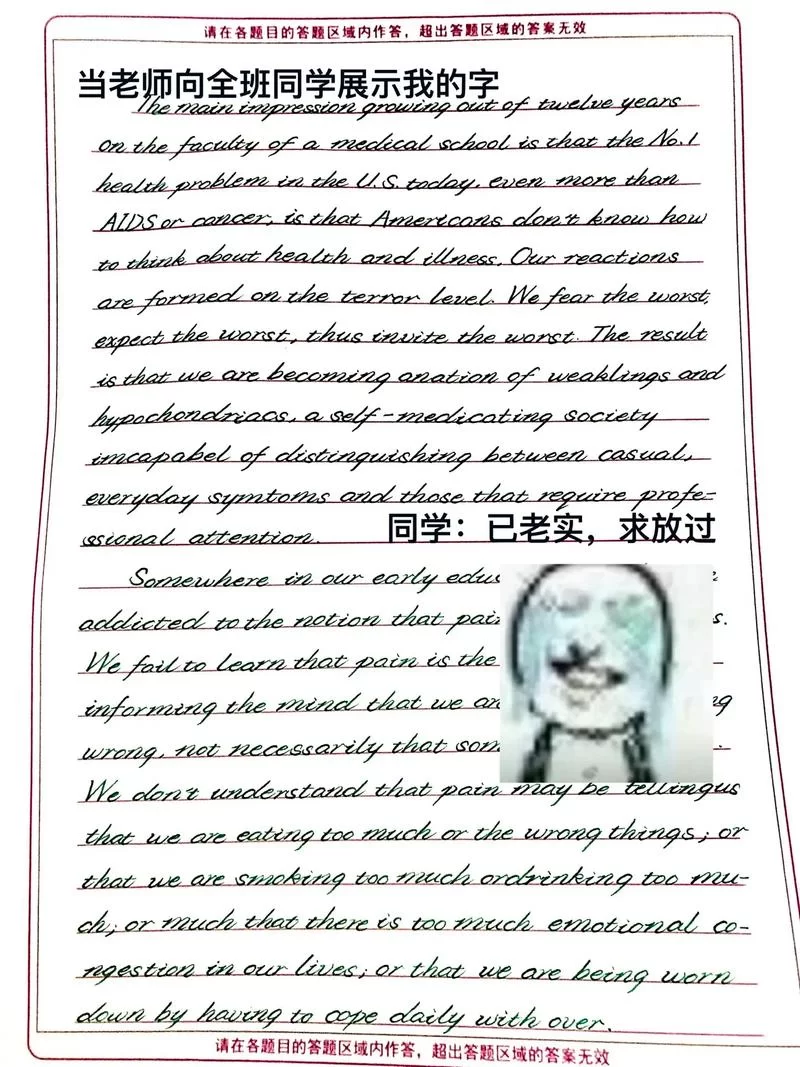 请在各题目的答题区域内作答，超出答题区域的答案无效
当老师向全班同学展示我的字
The main impression growing out of twelve years
on the faculty of a medical school is that the No.1
health problem in the U.S. today, even more than
AIDS or cancer, is that Americans don't know how
to think about health and illness. Our reactions
are formed on the terror level. We fear the worst,
expect the worst, thus invite the worst. The result
is that we are becoming anation of weaklings and
hypochondriacs, a self-medicating society
imcapabel of distinguishing between casual,
everyday symtoms and those that require profe-
ssional attention.
同学：已老实，求放过
Somewhere in our early
addicted to the notion that
We fail to learn that pain is the
informing the mind that we
wrong, not necessarily that
We don't understand that pain may be tellingus
that we are eating too much or the wrong things; or
that we are smoking too much ordrinking too mu-
ch; or much that there is too much emotional co-
ngestion in our lives; or that we are being worn
down by having to cope daily with over.
请在各题目的答题区域内作答，超出答题区域的答案无效